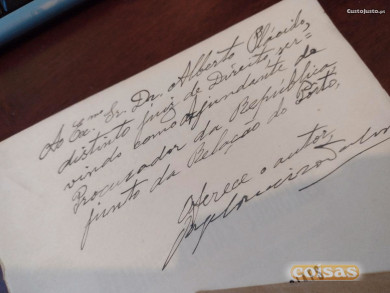 CustoJusto.pt
Ao Ex.mo Sr. Dr. Alberto Plácido,
distinto juiz de Direito ser=
vindo como ajundante do
Procurador da República
junto da Relação do Porto,
oferece o autor,
coisas